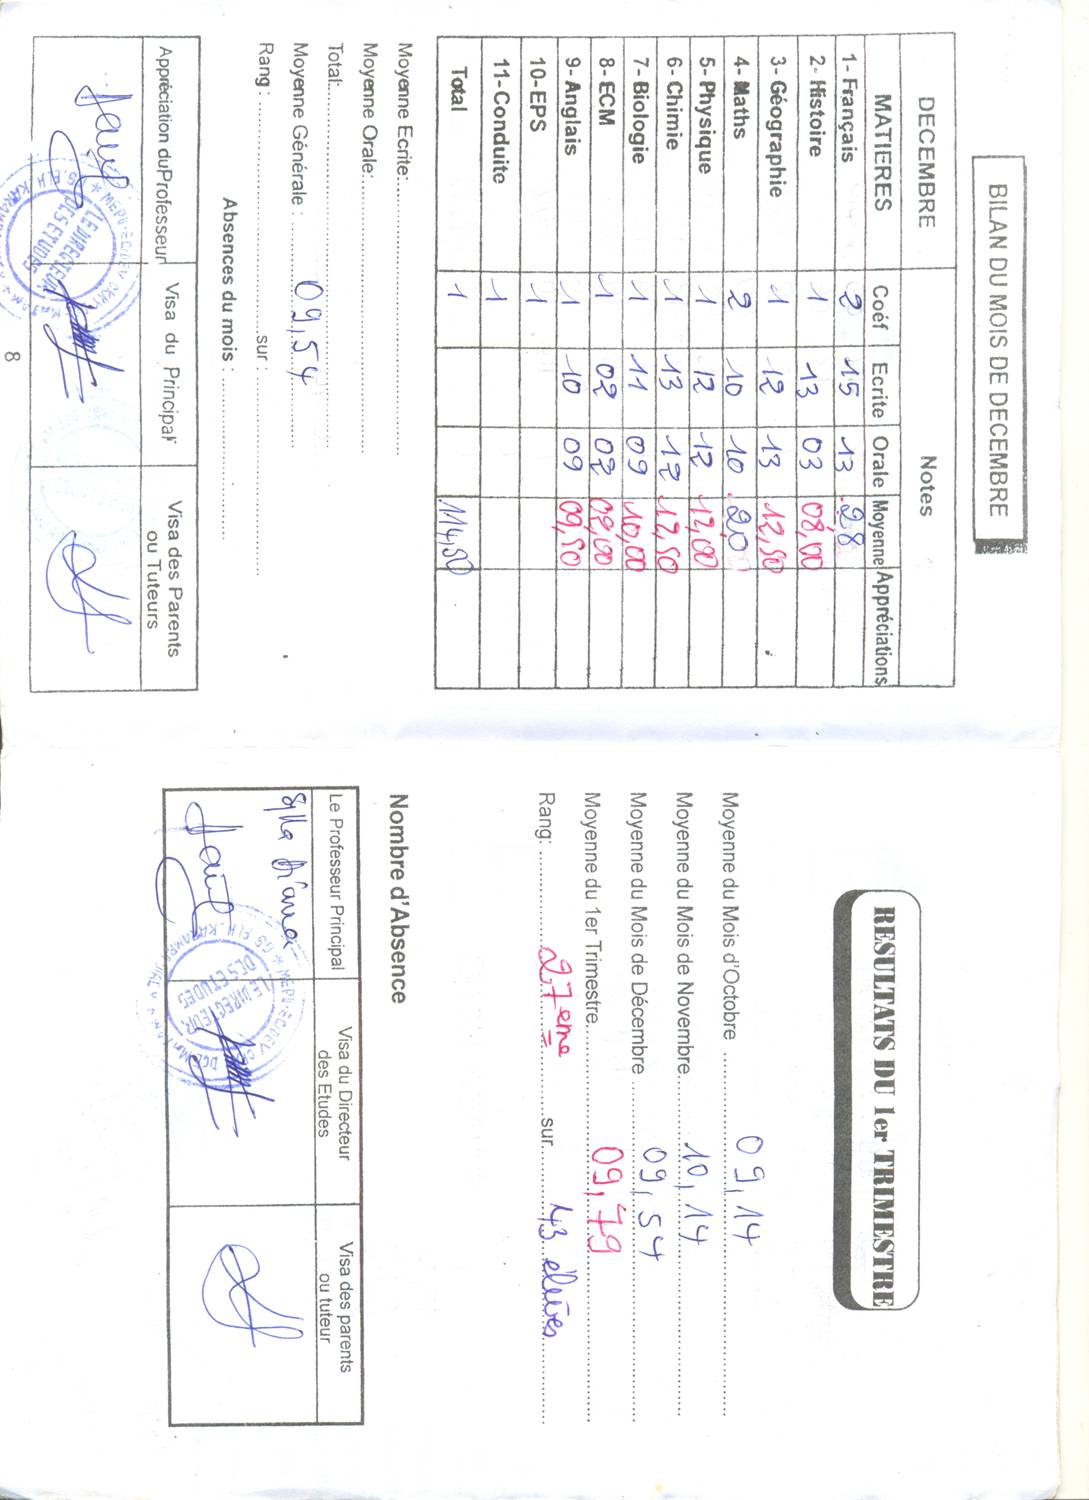 BILAN DU MOIS DE DECEMBRE
DECEMBRE Notes
MATIERES Coéf Ecrite Orale Moyenne Appréciations
1- Français 2 15 13 28
2- Histoire 1 13 03 08,00
3- Géographie 1 12 13 12,50
4- Maths 2 10 10 20
5- Physique 1 12 12 12,00
6- Chimie 1 13 12 12,50
7- Biologie 1 11 09 10,00
8- ECM 1 02 02 02,00
9- Anglais 1 10 09 09,50
10- EPS 1
11- Conduite 1
Total 1 114,50
Moyenne Ecrite:
Moyenne Orale:
Total:
Moyenne Générale : 09,54
Rang : sur :
Absences du mois :
Appréciation duProfesseur Visa du Principal Visa des Parents
ou Tuteurs
LE DIRECTEUR
DES ETUDES
8
RESULTATS DU 1er TRIMESTRE
Moyenne du Mois d'Octobre 09,14
Moyenne du Mois de Novembre 10,14
Moyenne du Mois de Décembre 09,54
Moyenne du 1er Trimestre 09,79
Rang: 27eme sur 43 élèves
Nombre d'Absence
Le Professeur Principal Visa du Directeur
des Etudes Visa des parents
ou tuteur
LE DIRECTEUR
DES ETUDES